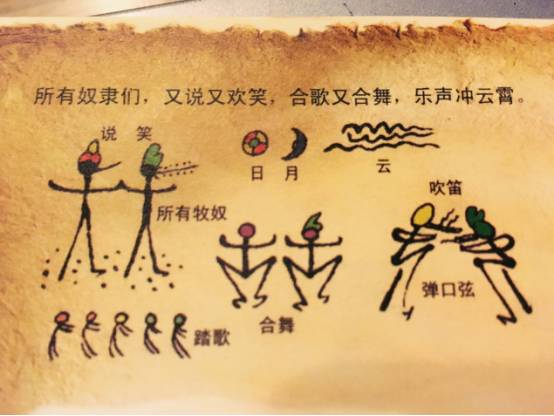 所有奴隶们，又说又欢笑，合歌又合舞，乐声冲云霄。
说 笑
日 月
云
吹笛
所有牧奴
弹口弦
合舞
踏歌